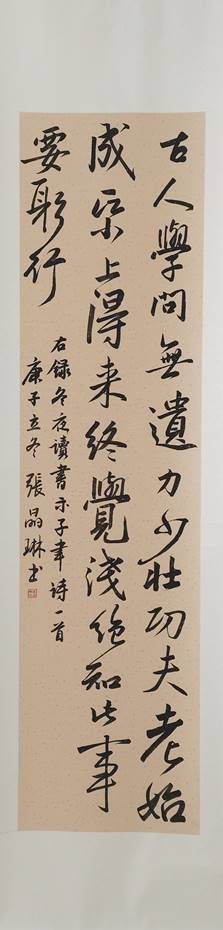 古人學問無遺力少壮功夫老始
成帋上得来終覺淺絶知此事
要躬行
右録冬夜讀書示子聿詩一首
庚子立冬張晶琳书